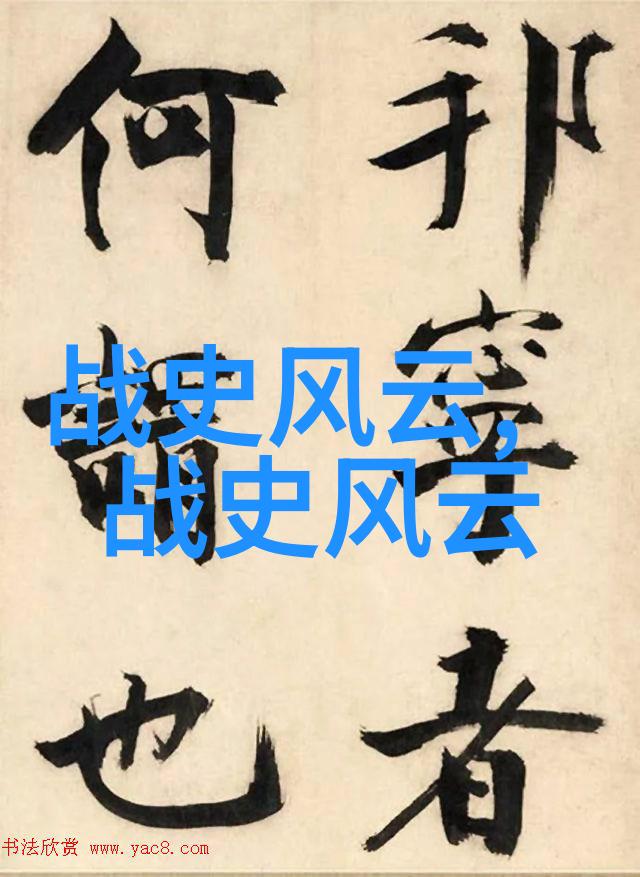 邦寧者
何謂也
战史风云,
战史风云
书法欣赏 www.yac8.com